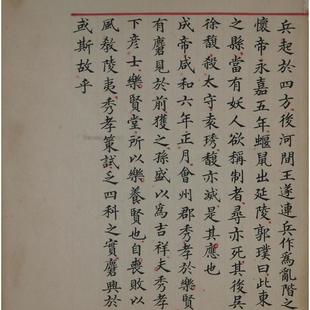 兵起於四方後河間王遂連兵作為亂階之
懷帝永嘉五年蝘鼠出延陵郭璞曰此東
之縣當有妖人欲稱制者尋亦死其後吳
徐馥殺太守袁琇馥亦滅是其應也
成帝咸和六年正月會州郡秀孝於樂賢
有麏見於前獲之孫盛以為吉祥夫秀孝
下彥士樂賢堂所以樂養賢也自喪敗以
風教陵夷秀孝策試乏四科之實麏興於
或斯故乎